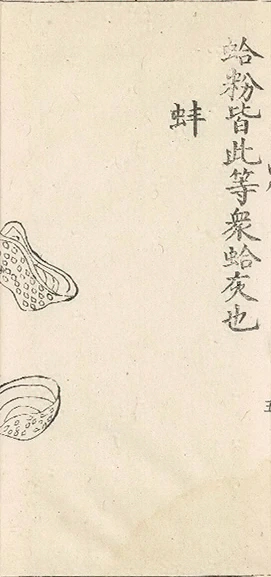 蛤粉皆此等衆蛤灰也
蚌
五